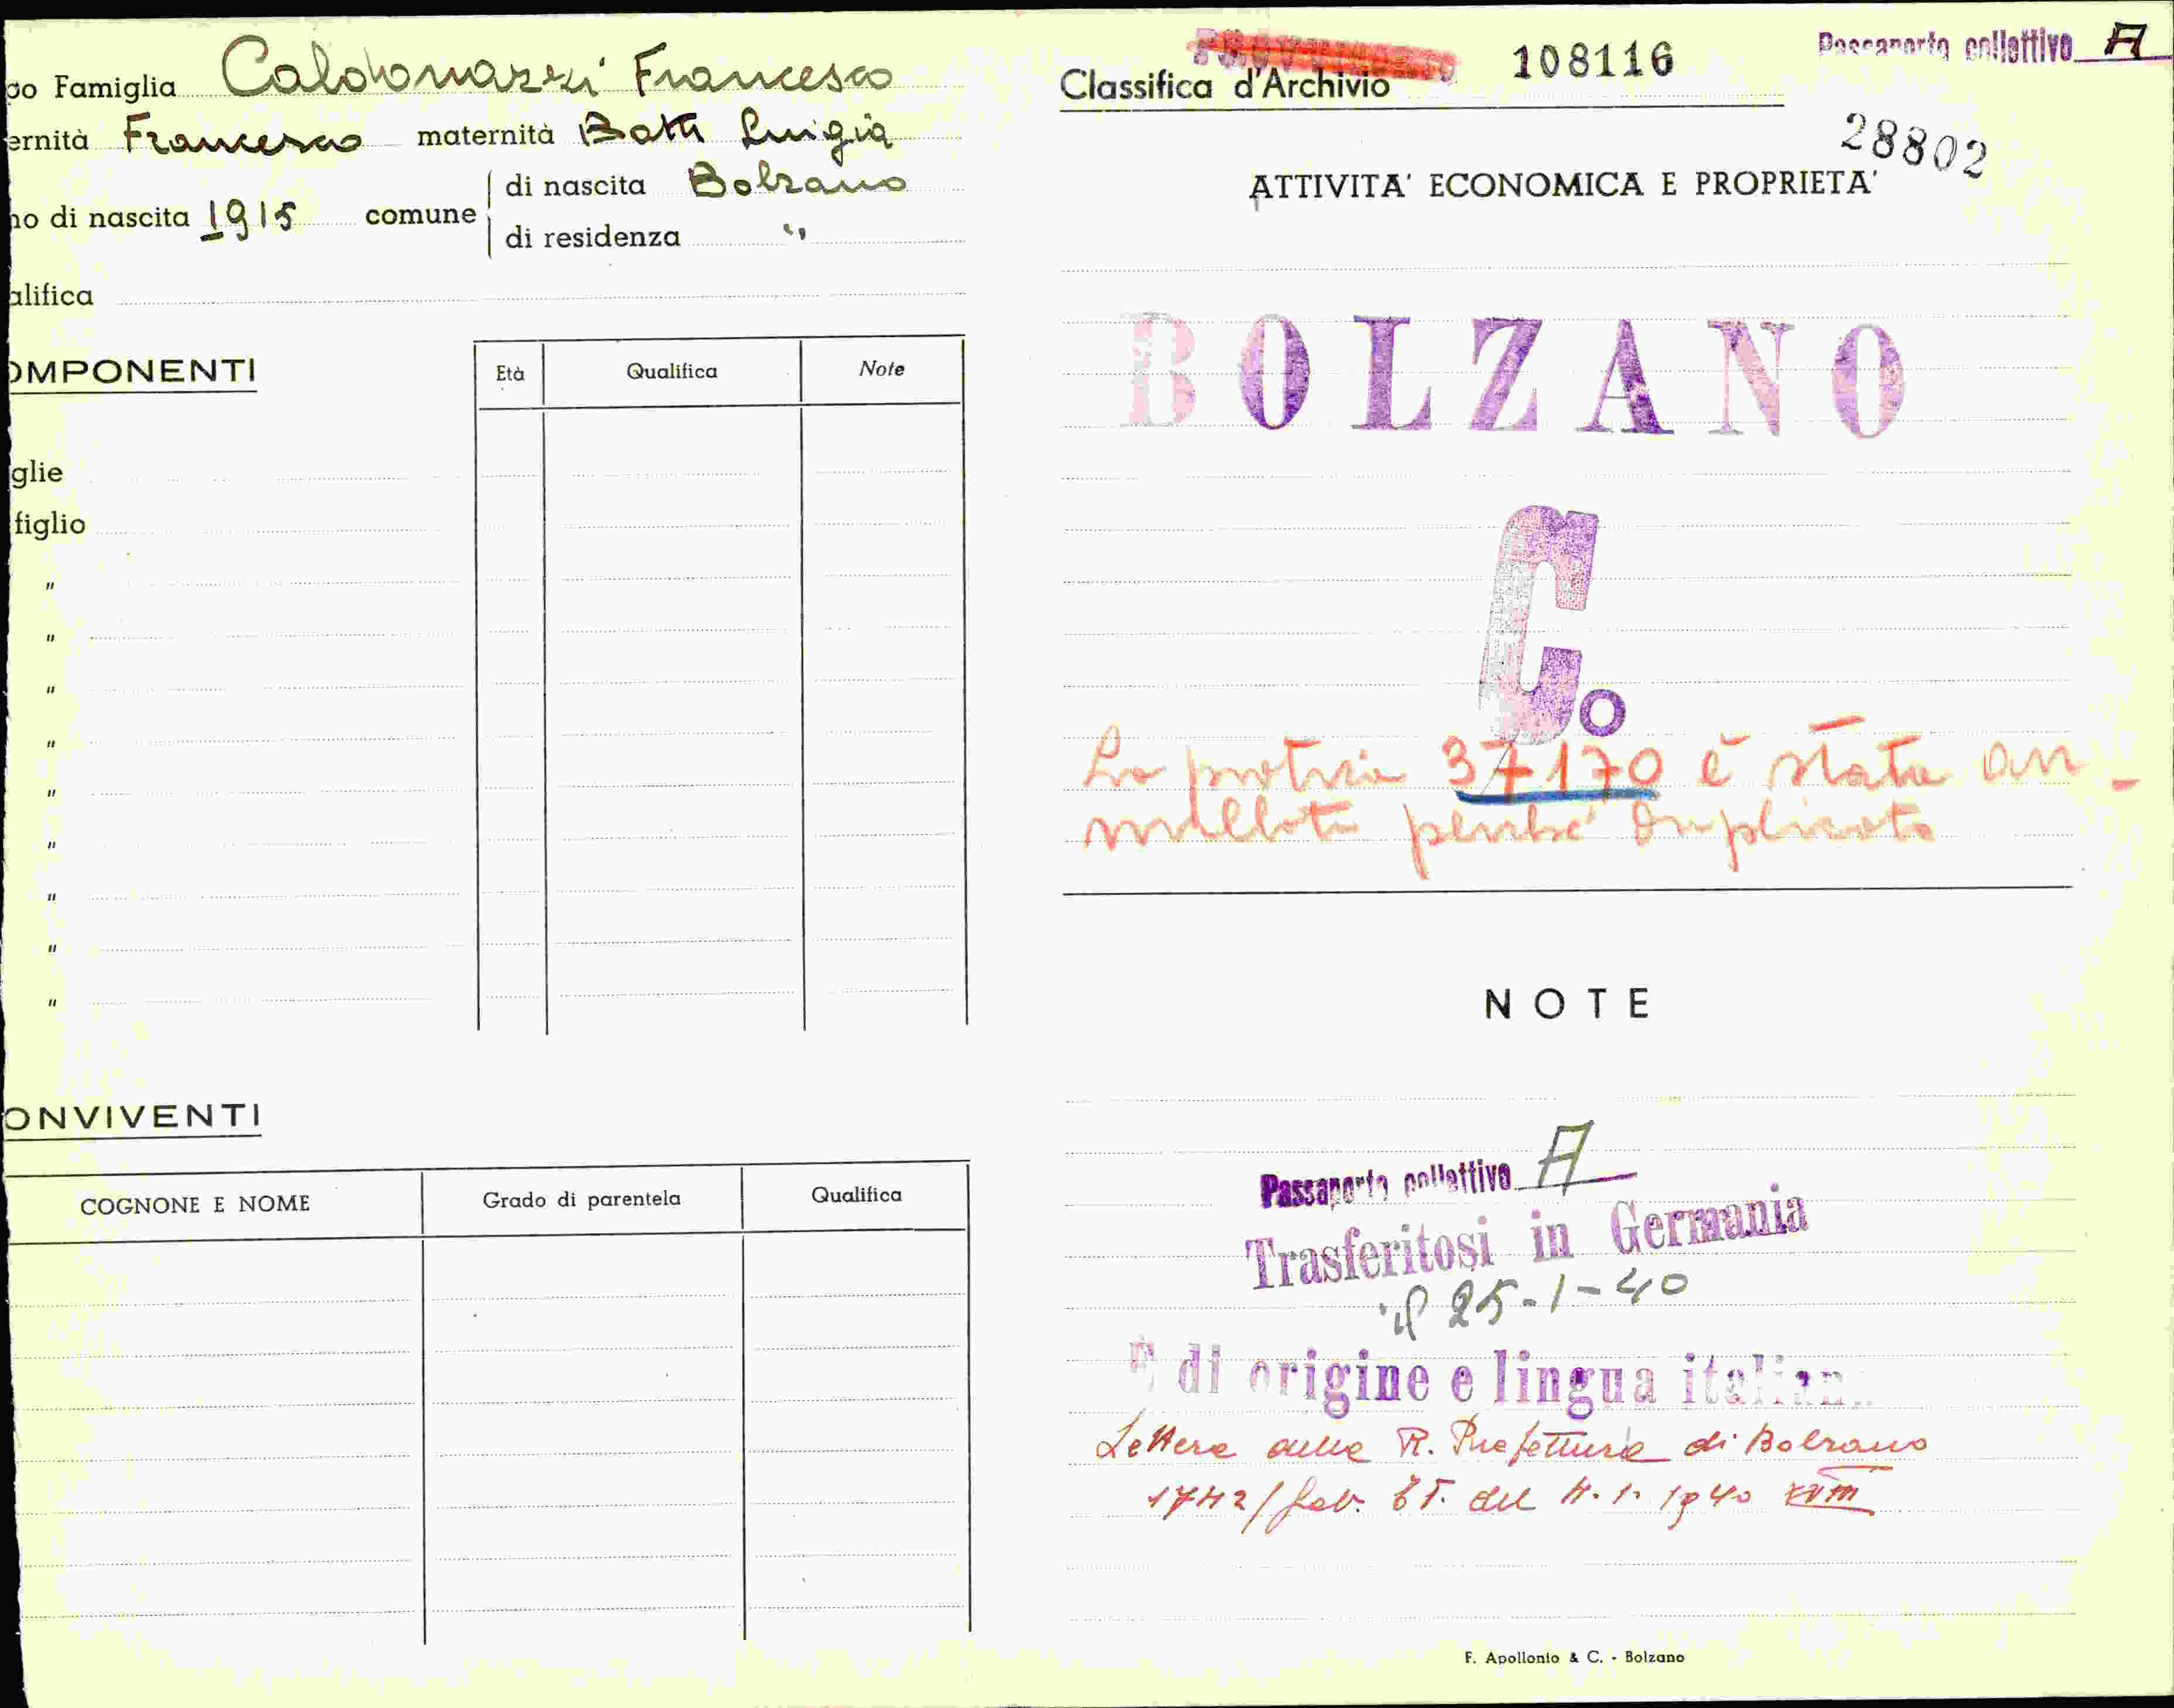 po Famiglia Calovonazzi Francesco
ernità Francesco maternità Luigia
no di nascita 1915 comune di nascita Bolzano
di residenza "
alifica
OMPONENTI
Età Qualifica Note
glie
figlio
"
"
"
"
"
"
"
"
"
ONVIVENTI
COGNONE E NOME Grado di parentela Qualifica
Passaporto collettivo A
108116
Classifica d'Archivio
28802
ATTIVITA' ECONOMICA E PROPRIETA'
BOLZANO
Co
La pratica 37170 è stata an-
nullata perchè duplicato
NOTE
Passaporto collettivo A
Trasferitosi in Germania
il 25-1-40
E di origine e lingua italiana
Lettera della R. Prefettura di Bolzano
1742/Gab. ET. del 4.1.1940 XVIII
F. Apollonio & C. - Bolzano